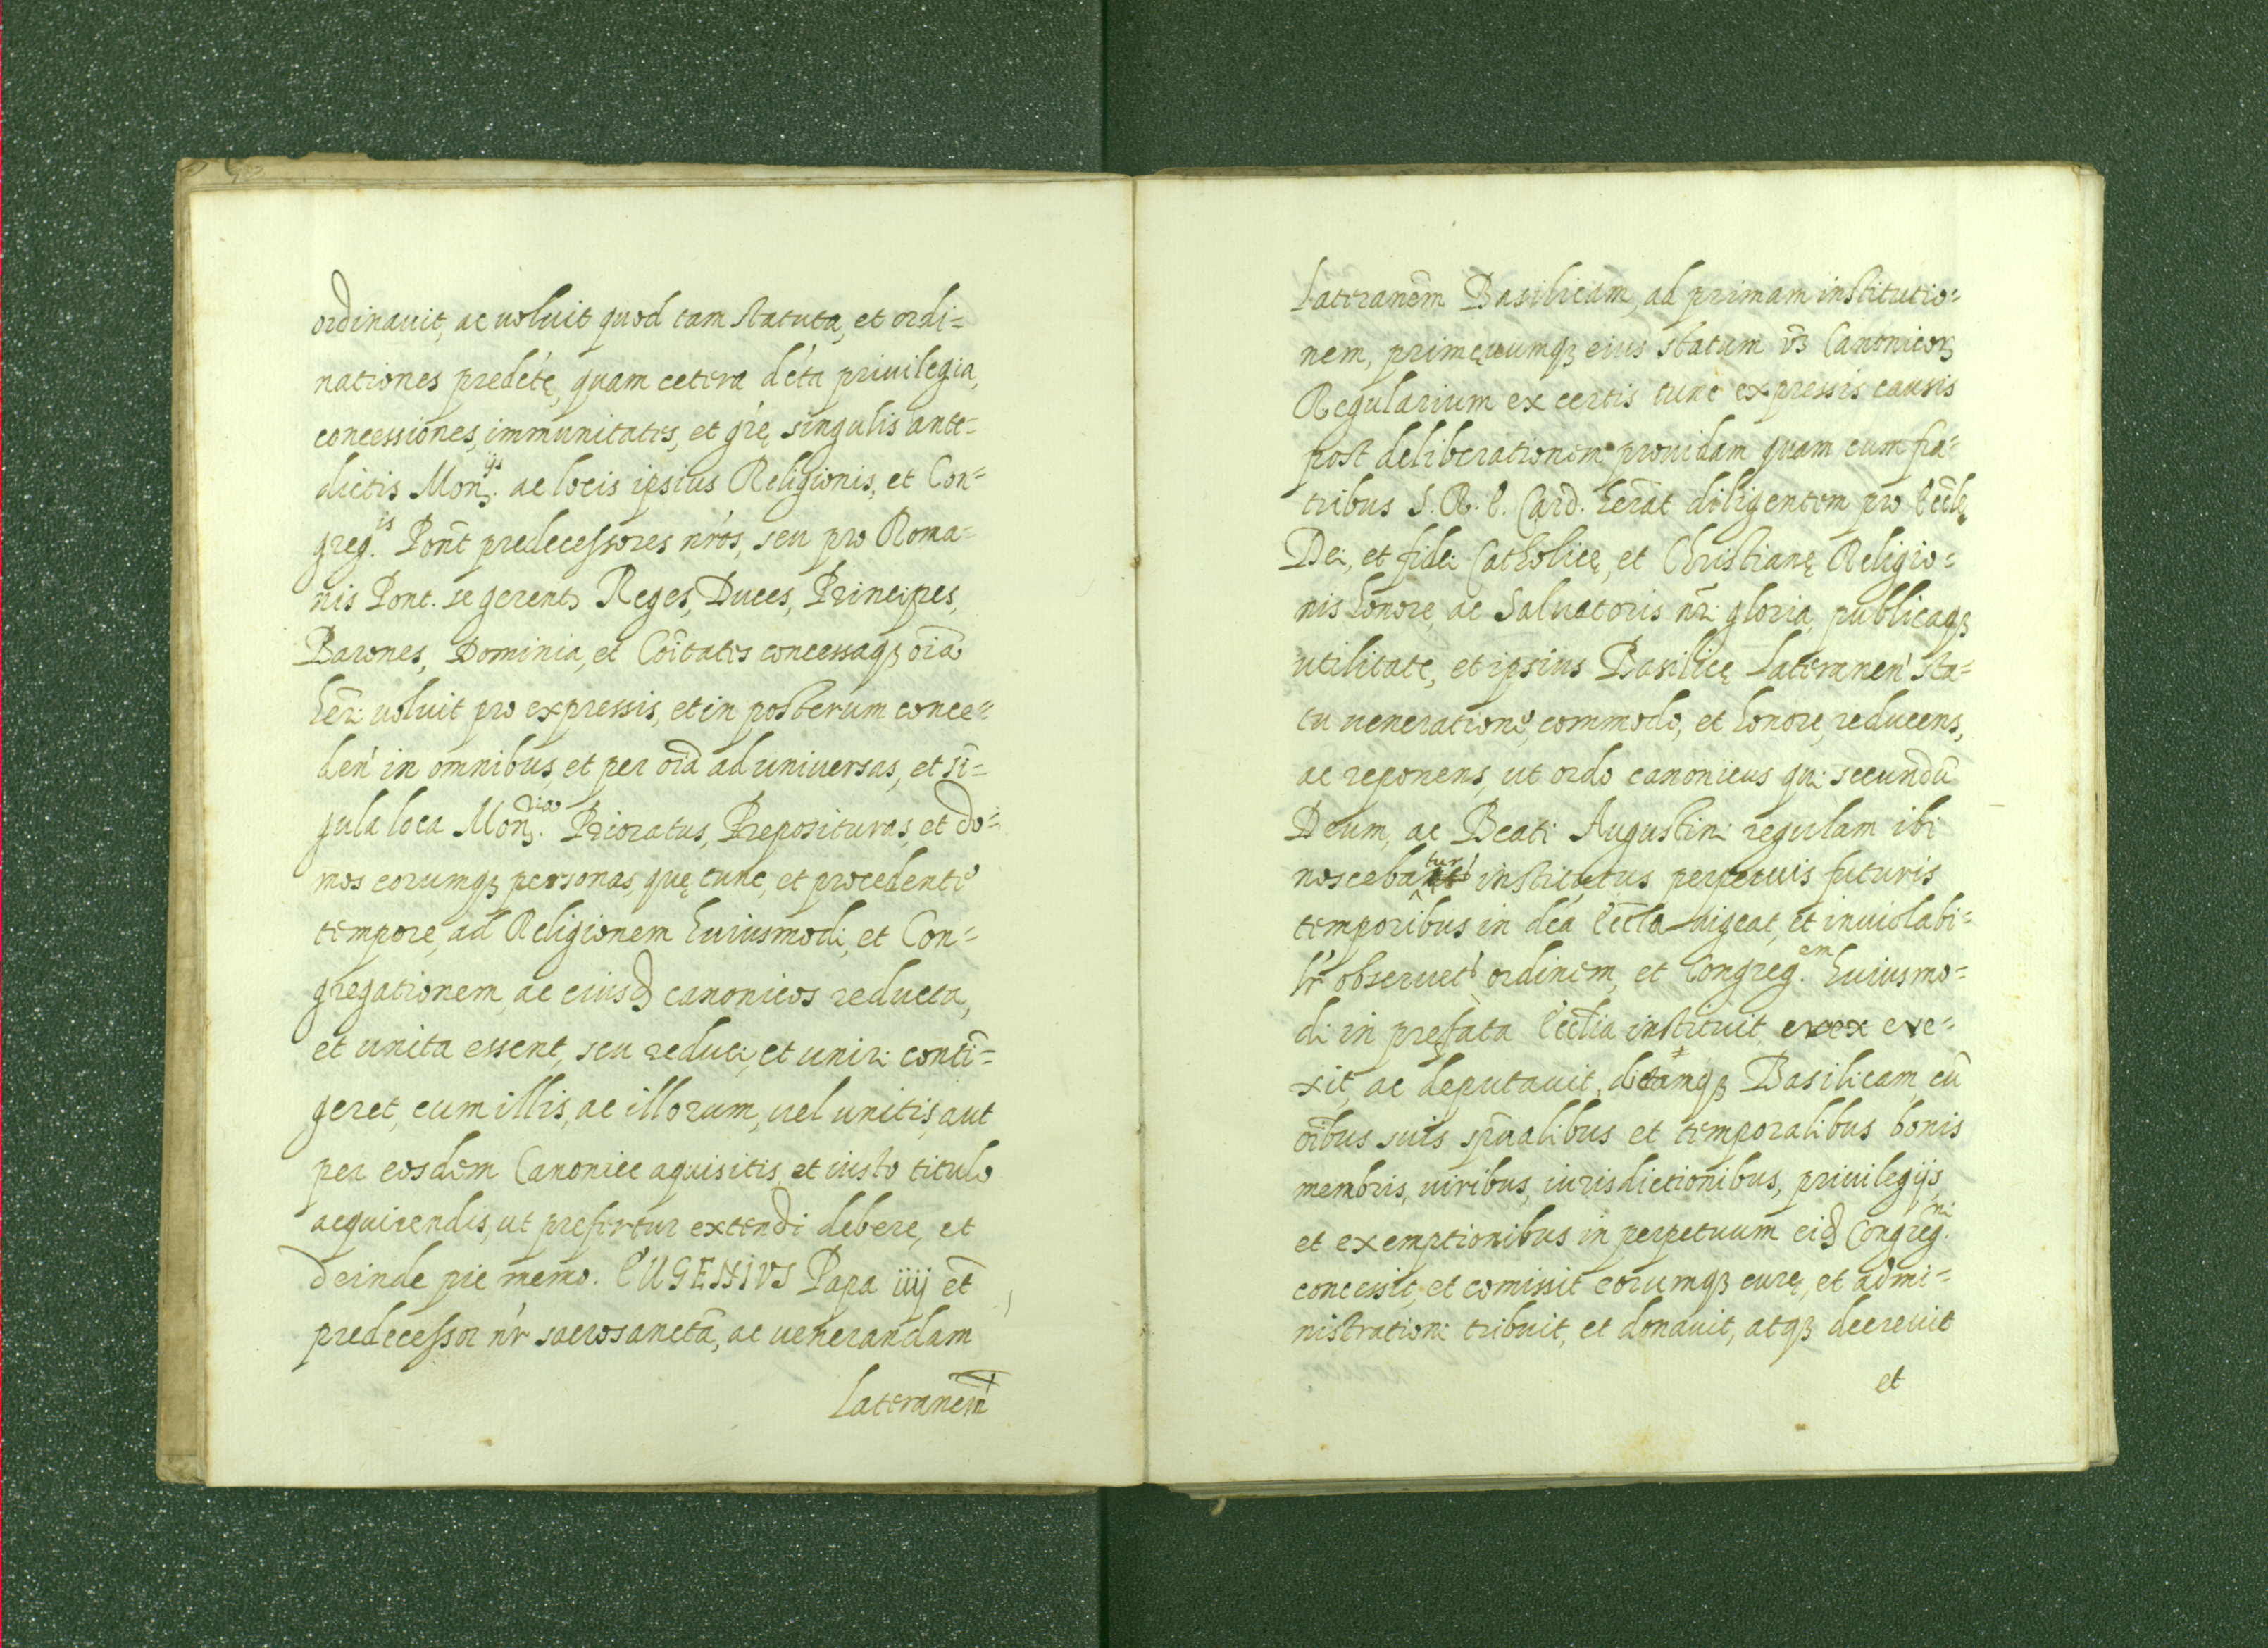 ordinauit, ac uoluit quod tam statuta, et ordi=
nationes predc̃tę, quam cetera dc̃ta priuilegia,
concessiones, immunitates, et gr̃ę singulis ante=
dictis Mon.ijs ac locis ipsius Religionis, et Con=
greg.is Pont̃ predecessores nr̃os, seu pro Roma=
nis Pont. se gerentes Reges, Duces, Principes,
Barones, Dominia, et Cõitates concessaqꝫ oĩa
hẽri uoluit pro expressis, et in posterum conce=
den̄ in omnibus, et per oĩa ad uniuersas, et sĩ=
gula loca Mon.ria Prioratus, Preposituras, et do=
mos eorumqꝫ personas, quę tunc, et procedenti
tempore, ad Religionem huiusmodi, et Con=
gregationem, ac eiusd canonicos reducta,
et unita essent, seu reduci, et uniri contĩ=
geret, cum illis, ac illorum, uel unitis, aut
per eosdem Canonice aquisitis, et iusto titulo
acquirendis, ut prefertur extendi debere, et
deinde pie memo. EUGENIVS Papa iiij et̃
predecessor nr̃ sacrosanctã, ac uenerandam
Lateranem̃
Lateranem̃ Basilicam, ad primam institutio=
nem, primęuumqꝫ eius statum v̄ꝫ Canonicoꝝ
Regularium ex certis tunc expressis causis
post deliberationem prouidam quam cum fra=
tribus S. R. E. Card. herat̃ diligentem pro Eccłę
Dei, et fidei Catholicę, et Christianę Religio=
nis honore, ac Saluatoris nr̃i gloria, publicaqꝫ
utilitate, et ipsius Basilicę Lateranen̄ sta=
tu ueneratione, commodo, et honore, reducens,
ac reponens, ut ordo canonicus qui secundũ
Deum, ac Beati Augustini regulam ibi
noscebatur institutus perpetuis futuris
temporibus in dc̃a Eccła uigeat, et inuiolabi=
lr̃ obseruet ordinem, et Congreg.em huiusmo=
di in prefata Eccłia instituit erex ere=
xit, ac deputauit, dictamqꝫ Basilicam, cũ
oĩbus suis spũalibus et temporalibus bonis
membris, uiribus, iurisdictionibus, priuilegijs,
et exemptionibus in perpetuum eid Congreg.ni
concessit, et comisit eorumqꝫ curę, et admi=
nistrationi tribuit, et donauit, atqꝫ decreuit
et